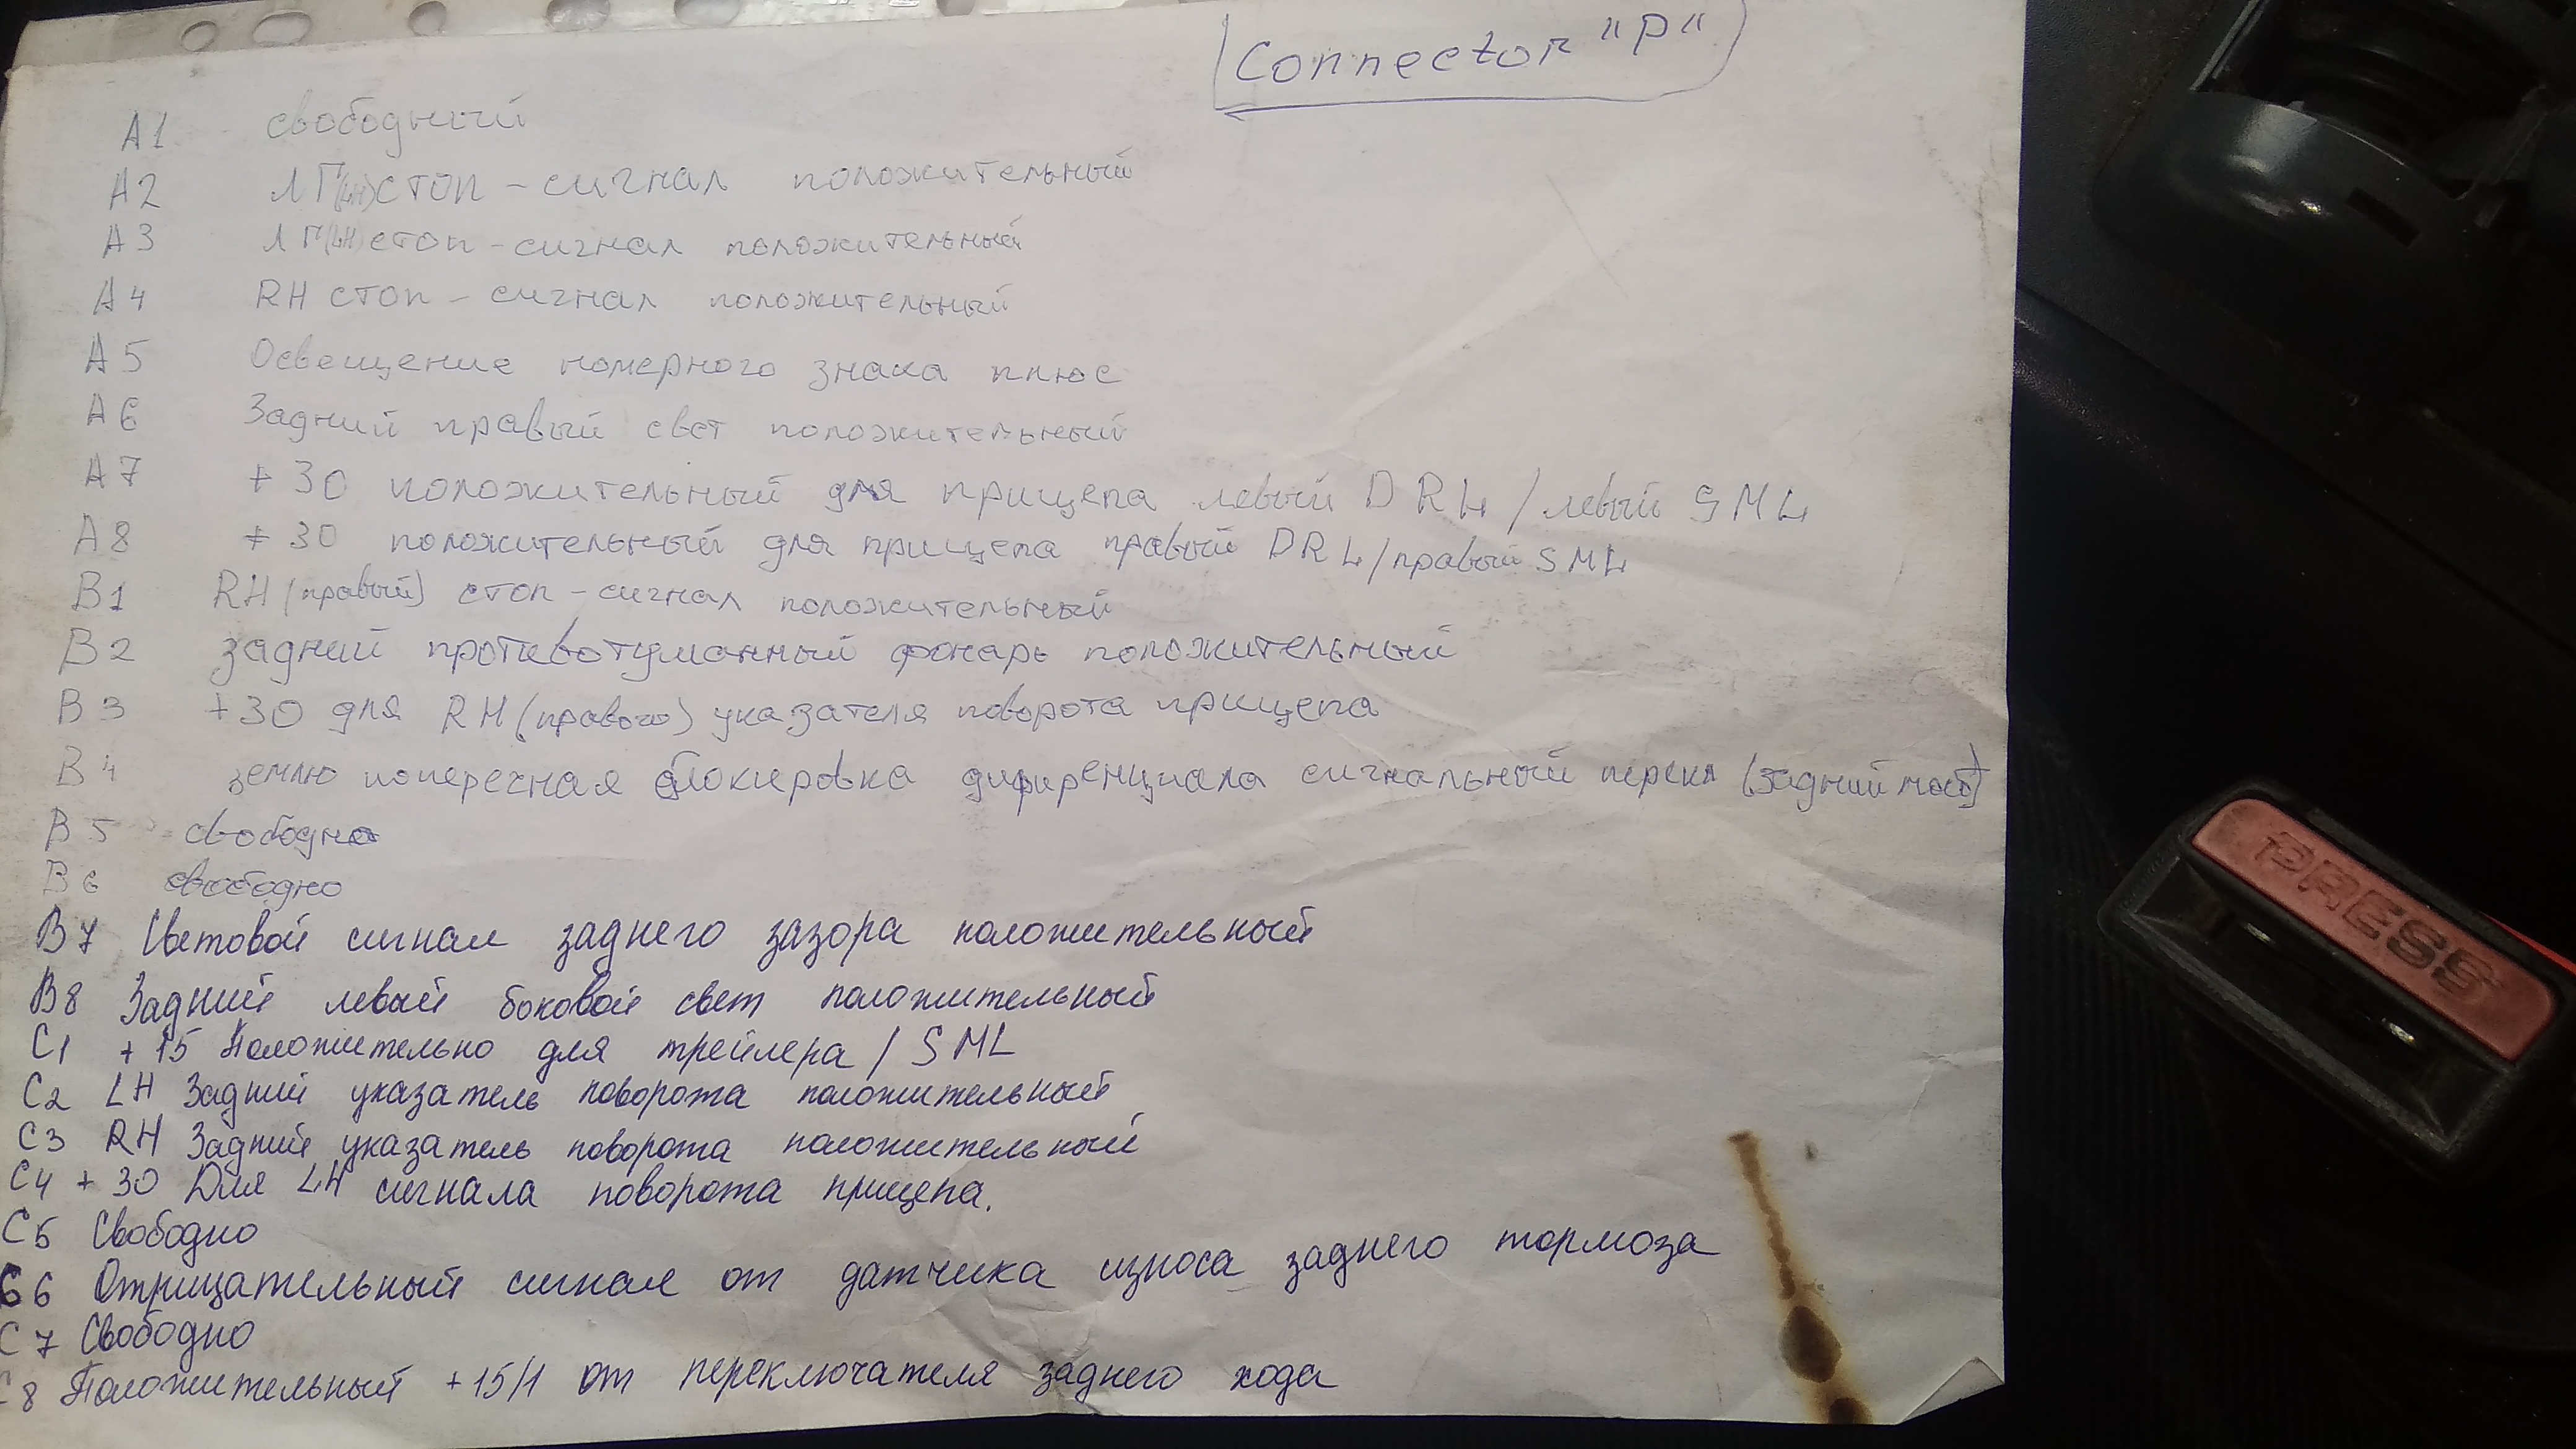 Connector "P"
A1 свободный
A2 ЛГ(LH) стоп - сигнал положительный
A3 ЛГ(LH) стоп - сигнал положительный
A4 RH стоп - сигнал положительный
A5 Освещение номерного знака плюс
A6 Задний правый свет положительный
A7 +30 положительный для прицепа левый DRL / левый SML
A8 +30 положительный для прицепа правый DRL / правый SML
B1 RH (правый) стоп - сигнал положительный
B2 задний противотуманный фонарь положительный
B3 +30 для RH (правого) указателя поворота прицепа
B4 землю поперечная блокировка дифиренциала сигнальный перекл (задний мост)
B5 свободно
B6 свободно
B7 Световой сигнал заднего зазора положительный
B8 Задний левый боковой свет положительный
C1 +15 Положительно для трейлера / SML
C2 LH Задний указатель поворота положительный
C3 RH Задний указатель поворота положительный
C4 +30 Для LH сигнала поворота прицепа.
C5 Свободно
C6 Отрицательный сигнал от датчика износа заднего тормоза
C7 Свободно
C8 Положительный +15/1 от переключателя заднего хода
PRESS